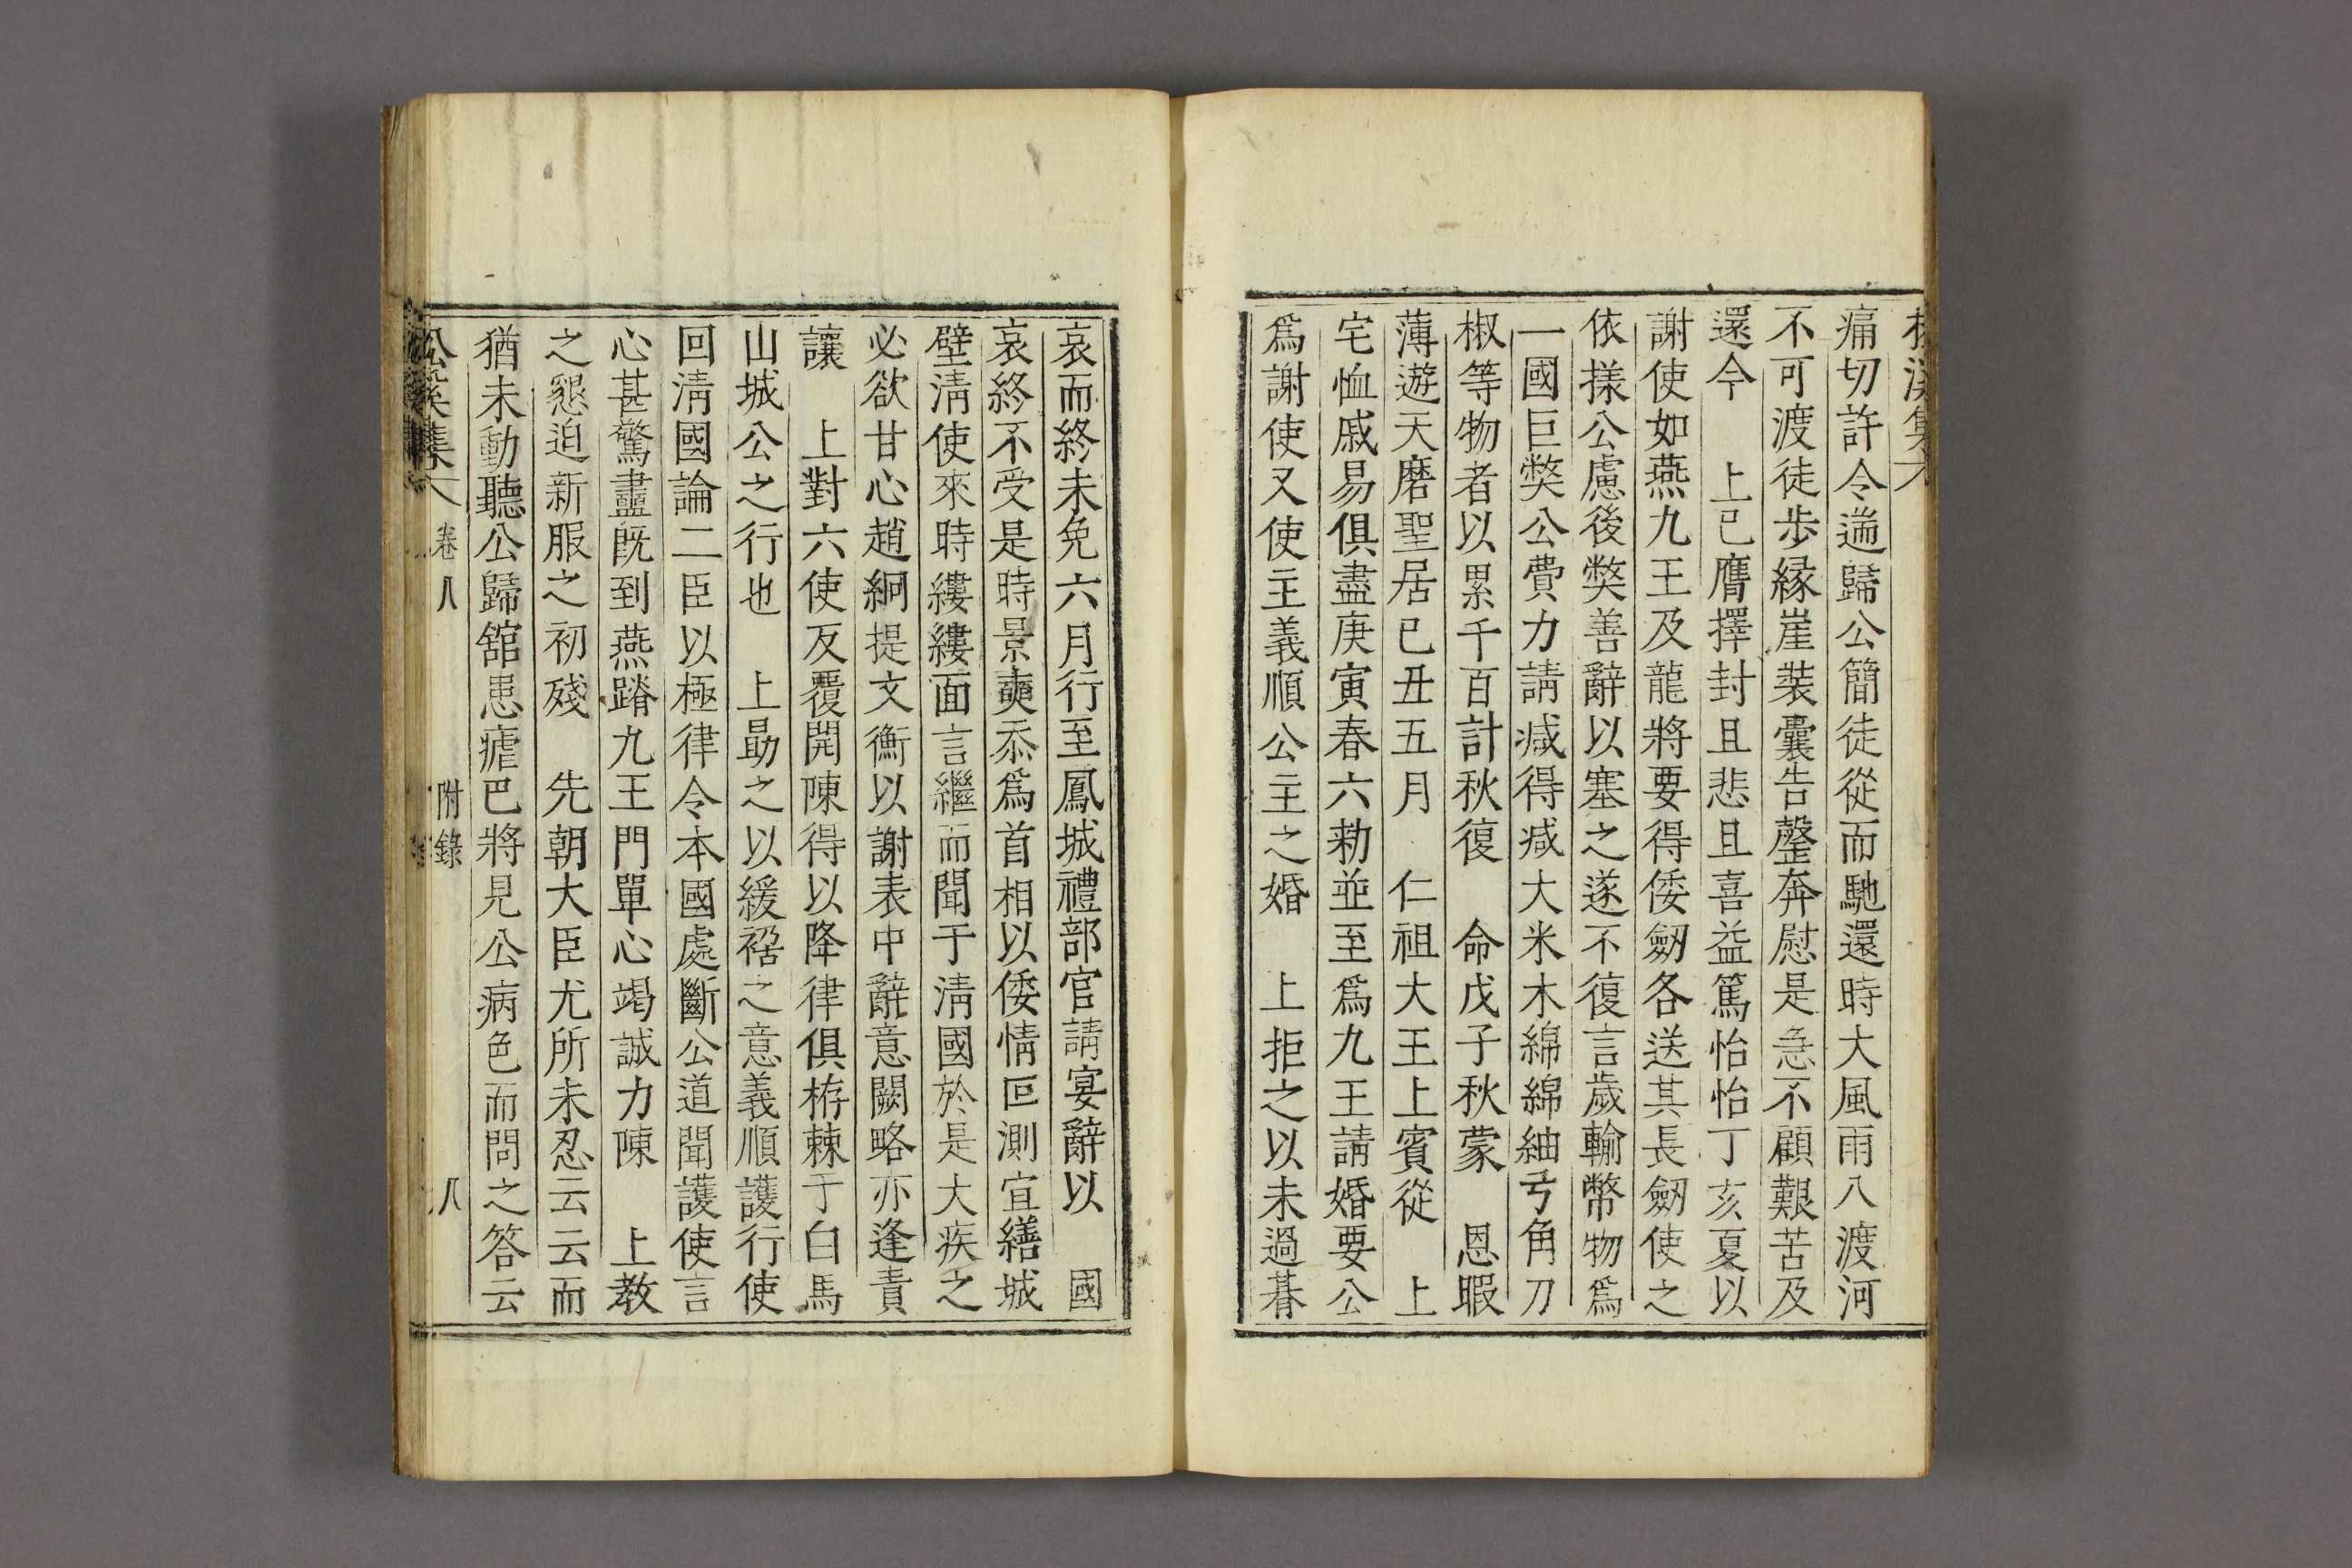 痛切許令遄歸公簡徒從而馳還時大風雨八渡河
不可渡徒步緣崖裝囊告罄奔慰是急不顧艱苦及
還今　上已膺擇封且悲且喜益篤怡怡丁亥夏以
謝使如燕九王及龍將要得倭劒各送其長劒使之
依㨾公慮後獘善辭以塞之遂不復言歲輸幣物爲
一國巨獘公費力請减得减大米木綿綿紬弓角刀
椒等物者以累千百計秋復　命戊子秋蒙　恩暇
薄遊天磨聖居己丑五月　仁祖大王上賓從　上
宅恤戚易俱盡庚寅春六勑並至爲九王請婚要公
爲謝使又使主義順公主之婚　上拒之以未過朞
哀而終未免六月行至鳳城禮部官請宴辭以　國
哀終不受是時景奭忝爲首相以倭情叵測宜繕城
壁淸使來時縷縷面言繼而聞于淸國於是大疾之
必欲甘心趙絅提文衡以謝表中辭意闕略亦逢責
讓　上對六使反覆開陳得以降律俱栫棘于白馬
山城公之行也　上勖之以緩䅵之意義順護行使
回淸國論二臣以極律令本國處斷公道聞護使言
心甚驚盡旣到燕踏九王門單心竭誠力陳　上教
之懇迫新服之初殘　先朝大臣尤所未忍云云而
猶未動聽公歸舘患瘧巴將見公病色而問之答云
松溪集　卷八　附錄　八